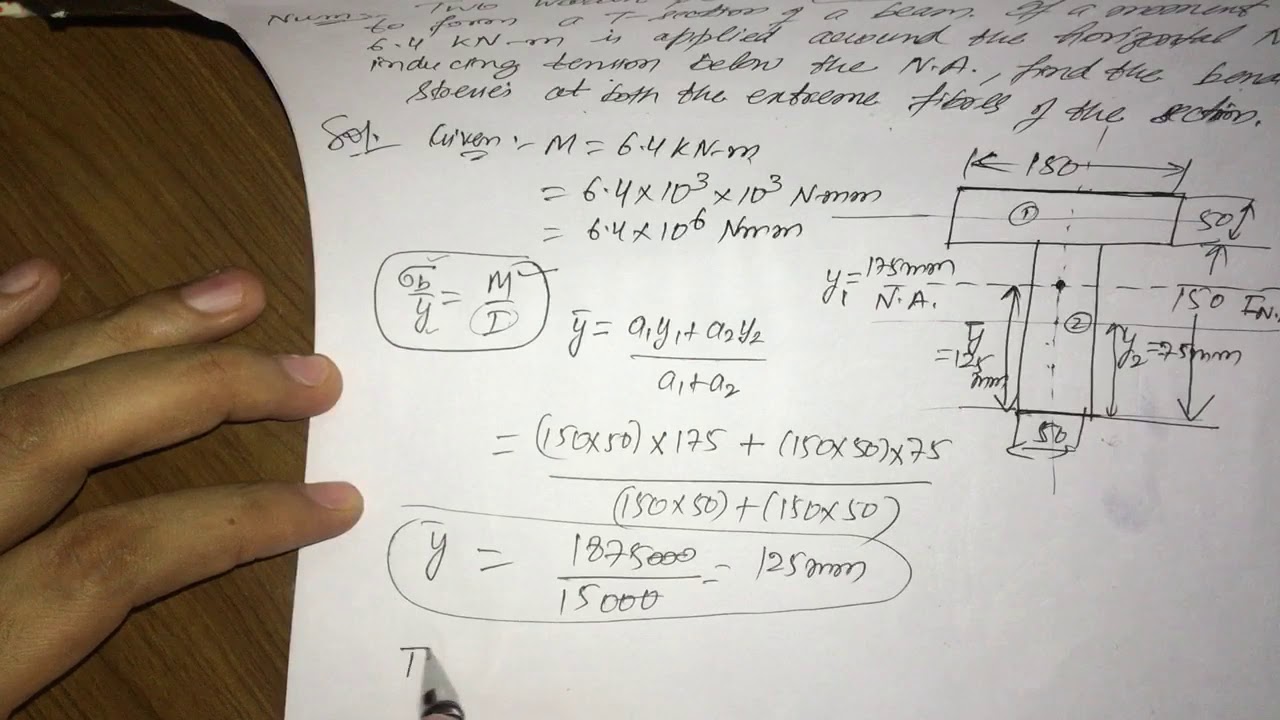 Num:- Two
to form a T-section of a beam. If a moment
6.4 KN-m is applied around the horizontal N
inducing tension below the N.A., find the bend
stresses at both the extreme fibres of the section.
Sol. Given:- M = 6.4 KN-m
= 6.4 × 10³ × 10³ N-mm
= 6.4 × 10⁶ Nmm
σb/y = M/I
ȳ = a₁y₁ + a₂y₂ / a₁ + a₂
= (150×50) × 175 + (150×50) × 75
(150×50) + (150×50)
ȳ = 1875000 / 15000 = 125mm
I
150
①
50
y₁ = 175mm
N.A.
150
IN.
②
ȳ = 125 mm
y₂ = 75mm
50